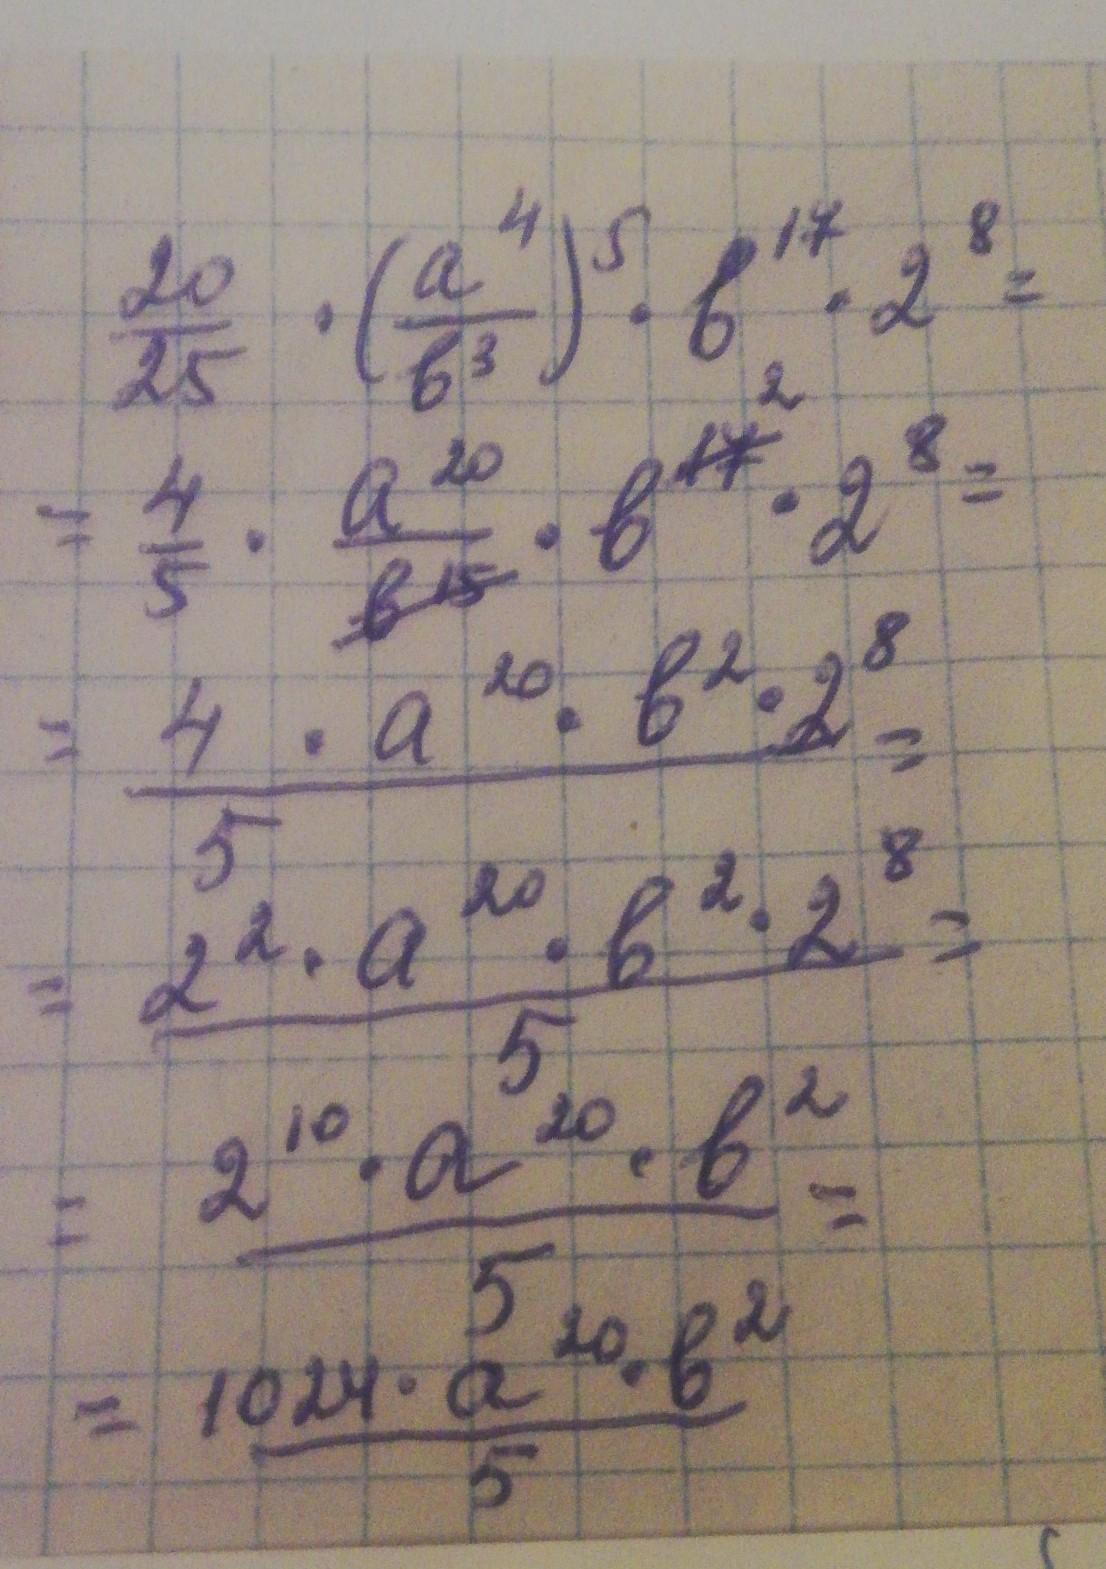 20/25 · (a⁴/b³)⁵ · b¹⁷ · 2⁸ =
= 4/5 · a²⁰/b¹⁵ · b¹⁷ ² · 2⁸ =
= (4 · a²⁰ · b² · 2⁸)/5 =
= (2² · a²⁰ · b² · 2⁸)/5 =
= (2¹⁰ · a²⁰ · b²)/5 =
= (1024 · a²⁰ · b²)/5